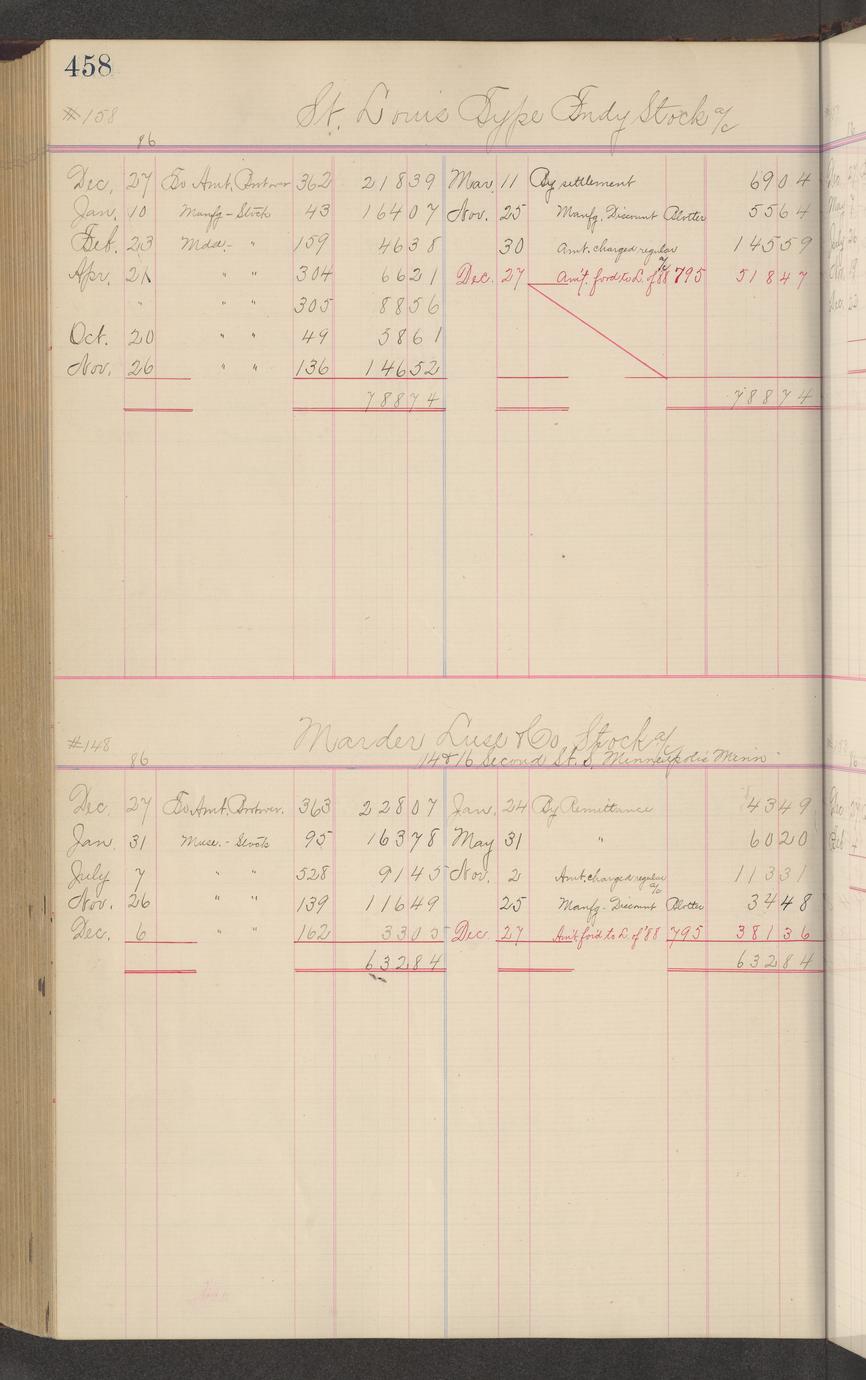 458
#158 St. Louis Type Fndy Stock a/c
86
Dec. 27 To Amt. Brot over 362 218 39 Mar. 11 By settlement 69 04
Jan. 10 Manfg - Stock 43 164 07 Nov. 25 Manfg. Discount Blotter 55 64
Feb. 23 Mdse. - " 159 46 38 30 Amt. charged regular a/c 145 59
Apr. 21 " " 304 66 21 Dec. 27 Am't. ford to L. of 88 795 518 47
" 305 88 56
Oct. 20 " " 49 58 61
Nov. 26 " " 136 146 52
788 74 788 74
#148 Marder Luse & Co. Stock a/c
86 14 & 16 Second St. S. Minneapolis Minn
Dec. 27 To Amt. Brot over. 363 228 07 Jan. 24 By Remittance 43 49
Jan. 31 - Stock 95 163 78 May 31 " 60 20
July 7 " " 528 91 45 Nov. 2 Amt. charged regular a/c 113 31
Nov. 26 " " 139 116 49 25 Manfg - Discount Blotter 34 48
Dec. 6 " " 162 33 05 Dec. 27 Am't ford to L. of '88 795 381 36
632 84 632 84